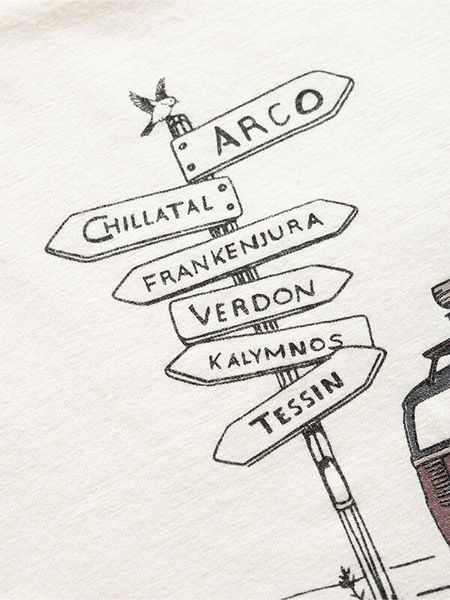 ARCO
CHILLATAL
FRANKENJURA
VERDON
KALYMNOS
TESSIN